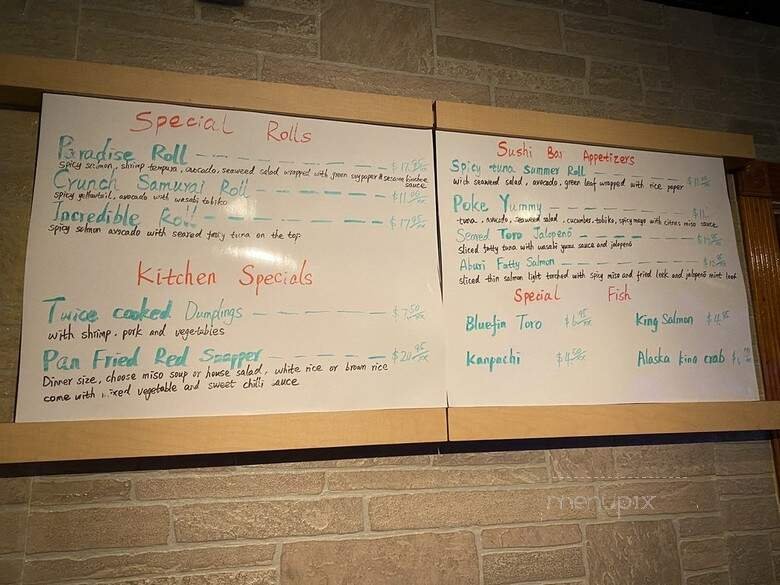 Special Rolls
Paradise Roll
spicy salmon, shrimp tempura, avocado, seaweed salad wrapped with green soypaper &
sauce
Crunch Samurai Roll $11.95
spicy yellowtail, avocado with wasabi tobiko
Incredible Roll $17.95
spicy salmon avocado with seared fatty tuna on the top
Kitchen Specials
Twice cooked Dumplings $7.50
with shrimp. pork and vegetables
Pan Fried Red Snapper $20.95
Dinner size, choose miso soup or house salad, white rice or brown rice
come with mixed vegetable and sweet chilli sauce
Sushi Bar Appetizers
Spicy tuna summer Roll
with seaweed salad, avocado, green leaf wrapped with rice paper
Poke Yummy
tuna, avocado, seaweed salad, cucumber, tobiko, spicy mayo with citrus miso sauce
Seared Toro Jalapeno
sliced fatty tuna with wasabi yuzu sauce and jalapeno
Aburi Fatty Salmon
sliced thin salmon light torched with spicy miso and fried leek and jalapeno mint leaf
Special Fish
Bluefin Toro $6.95
King Salmon
Kanpachi $4.50
Alaska king crab
menupix